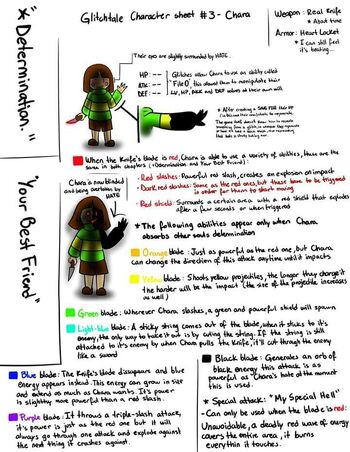 Glitchtale Character sheet #3 - Chara
Weapon: Real Knife
* About time
Armor: Heart Locket
* I can still feel
it's beating...
* "Determination."
Their eyes are slightly surrounded by HATE
HP : ---
ATK: ---
DEF: ---
Glitches allow Chara to use an ability called
this allowed them to manipulate their
LV, HP, ATK and DEF values at their own will
When the Knife's blade is red, Chara is able to use a variety of abilities, these are the
same in both chapters (*Determination and Your Best Friend):
- Red slashes: Powerful red slash, creates an explosion at impact
- Dark red slashes: Same as the red ones, but these have to be triggered
in order for them to start moving
- Red shield: Surrounds a certain area with a red shield that explodes
after a few seconds or when triggered
"Your Best Friend"
Chara is now blinded
and being overtaken by
HATE
* The following abilities appear only when Chara
absorbs other souls determination
Orange blade: Just as powerful as the red one, but Chara
can change the direction of this attack anytime until it impacts
Yellow blade: Shoots yellow projectiles, the longer they charge it
the harder will be the impact (the size of the projectile increases
as well)
Green blade: Wherever Chara slashes, a green and powerful shield will spawn
Light-blue blade: A sticky string comes out of the blade, when it sticks to it's
enemy, the only way to take it out is by cuting the string. If the string is still
attached to it's enemy by when Chara pulls the knife, it'll cut through the enemy
like a sword
Blue blade: The Knife's blade dissapears and blue
Energy appears instead. This energy can grow in size
and extend as much as Chara wants. It's power
is slightly more powerful than a red slash.
Purple blade: It throws a triple-slash attack,
it's power is just as the red one but it will
always go through one attack and explode against
the next thing it crashes against.
Black blade: Generates an orb
of black energy, this attack is as
powerful as Chara's hate at the moment
this is used.
* Special attack: "My Special Hell"
- Can only be used when the blade is red:
Unavoidable, a deadly red wave of energy
covers the entire area, it burns
everything it touches.